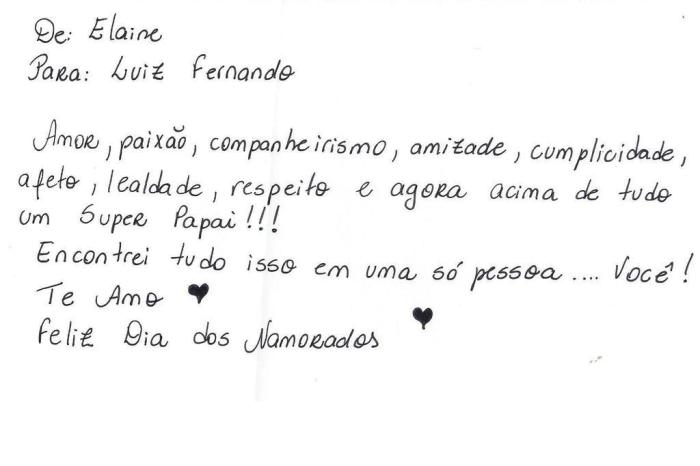 De: Elaine
Para: Luiz Fernando
Amor, paixão, companheirismo, amizade, cumplicidade,
afeto, lealdade, respeito e agora acima de tudo
um Super Papai!!!
Encontrei tudo isso em uma só pessoa .... Você!
Te Amo ♥
Feliz Dia dos Namorados ♥